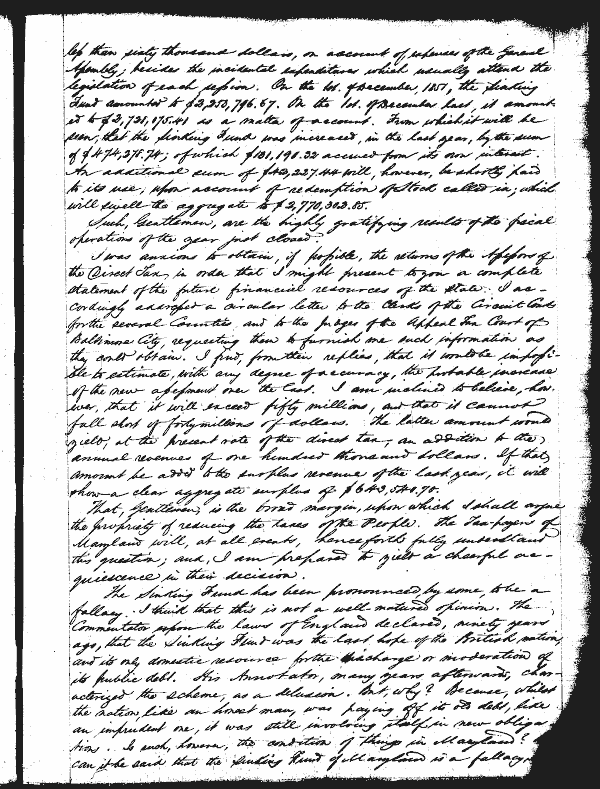 less than sixty thousand dollars, on account of expenses of the General
Assembly; besides the incidental expenditures which usually attend the
legislation of each session. On the 1st. of December, 1851, the Sinking
Fund amounted to $2,253,796.67. On the 1st. of December last, it amount-
ed to $2,728,075.41 as a matter of account. From which it will be
seen, that the Sinking Fund was increased, in the last year, by the sum
of $474,278.74; of which $131,190.22 accrued from its own interest.
An additional sum of $42,227.44 will, however, be shortly paid
to its use, upon account of redemption of Stock called in; which
will swell the aggregate to $2,770,302.85.
Such, Gentlemen, are the highly gratifying results of the fiscal
operations of the year just closed.
I was anxious to obtain, if possible, the returns of the Assessors of
the Direct Tax, in order that I might present to you a complete
statement of the future financial resources of the State. I ac-
cordingly addressed a circular letter to the Clerks of the Circuit Courts
for the several Counties, and to the Judges of the Appeal Tax Court of
Baltimore City, requesting them to furnish me such information as
they could obtain. I find, from their replies, that it would be impossi-
ble to estimate, with any degree of accuracy, the probable increase
of the new assessment over the last. I am inclined to believe, how-
ever, that it will exceed fifty millions, and that it cannot
fall short of forty millions of dollars. The latter amount would
yield, at the present rate of the direct tax, an addition to the
annual revenues of one hundred thousand dollars. If that
amount be added to the surplus revenue of the last year, it will
show a clear aggregate surplus of $643,541.78.
That, Gentlemen, is the broad margin, upon which I shall argue
the propriety of reducing the taxes of the People. The Tax-payers of
Maryland will, at all events, henceforth fully understand
this question; and, I am prepared to yield a cheerful ac-
quiescence in their decision.
The Sinking Fund has been pronounced, by some, to be a
fallacy. I think that this is not a well matured opinion. The
Commentator upon the laws of England declared, ninety years
ago, that the Sinking Fund was the last hope of the British nation,
and its only domestic resource for the discharge or moderation of
its public debt. His Annotator, many years afterwards, char-
acterized the scheme, as a delusion. But, why? Because, whilst
the nation, like an honest man, was paying off its old debt, like
an imprudent one, it was still involving itself in new obliga-
tions. Is such, however, the condition of things in Maryland?
can it be said that the Sinking Fund of Maryland is a fallacy,